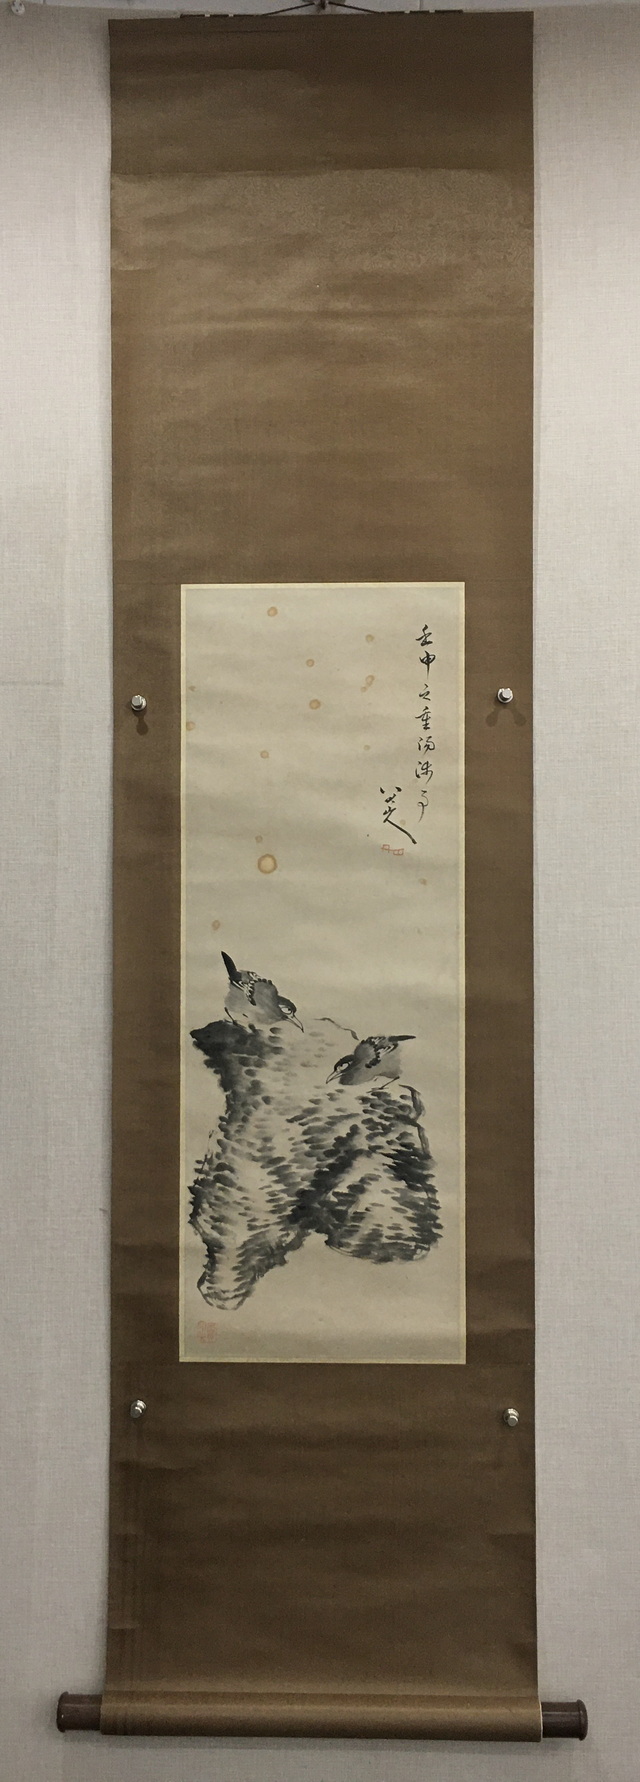 壬申之重陽涉事
八大山人